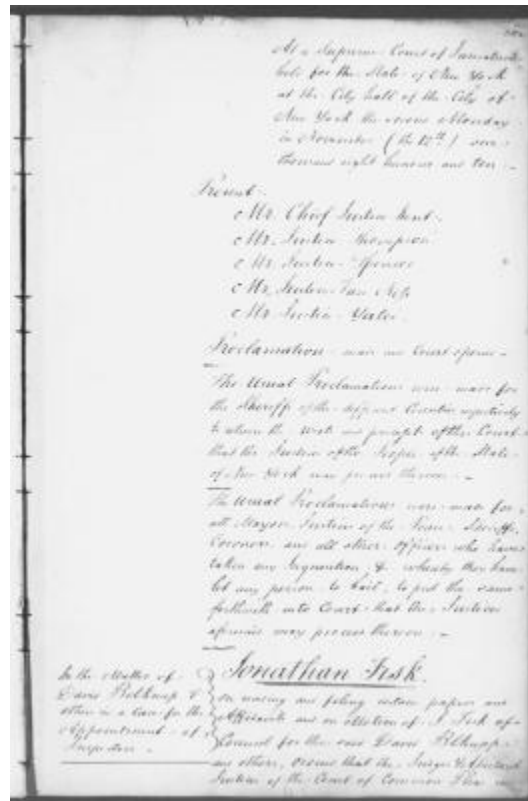 At a Supreme Court of Judicature
held for the State of New York
at the City hall of the City of
New York the second Monday
in November (the 12th) one
thousand eight hundred and ten
Present.
Mr. Chief Justice Kent
Mr. Justice Thompson
Mr. Justice Spencer
Mr. Justice Van Ness
Mr. Justice Yates
Proclamation made and Court opened
The Usual Proclamations were made for
the Sheriffs of the different Counties respectively
to return the writs and precepts of the Court
that the Justices of the People of the State
of New York may proceed thereon
The Usual Proclamations were made for
all Mayors Justices of the Peace Sheriffs
Coroners and all other Officers who have
taken any Inquisition, & whereby they have
let any person to bail, to put the same
forthwith into Court that the Justices
aforesaid may proceed thereon
Jonathan Fisk.
In the Matter of
David Belknap &
others in a Case for the
Appointment of
Inspectors
on reading and filing certain papers and
Affidavits and on Motion of J. Fisk of
Council for the said David Belknap
and others, ordered that the Judges &
Justices of the Court of Common Pleas